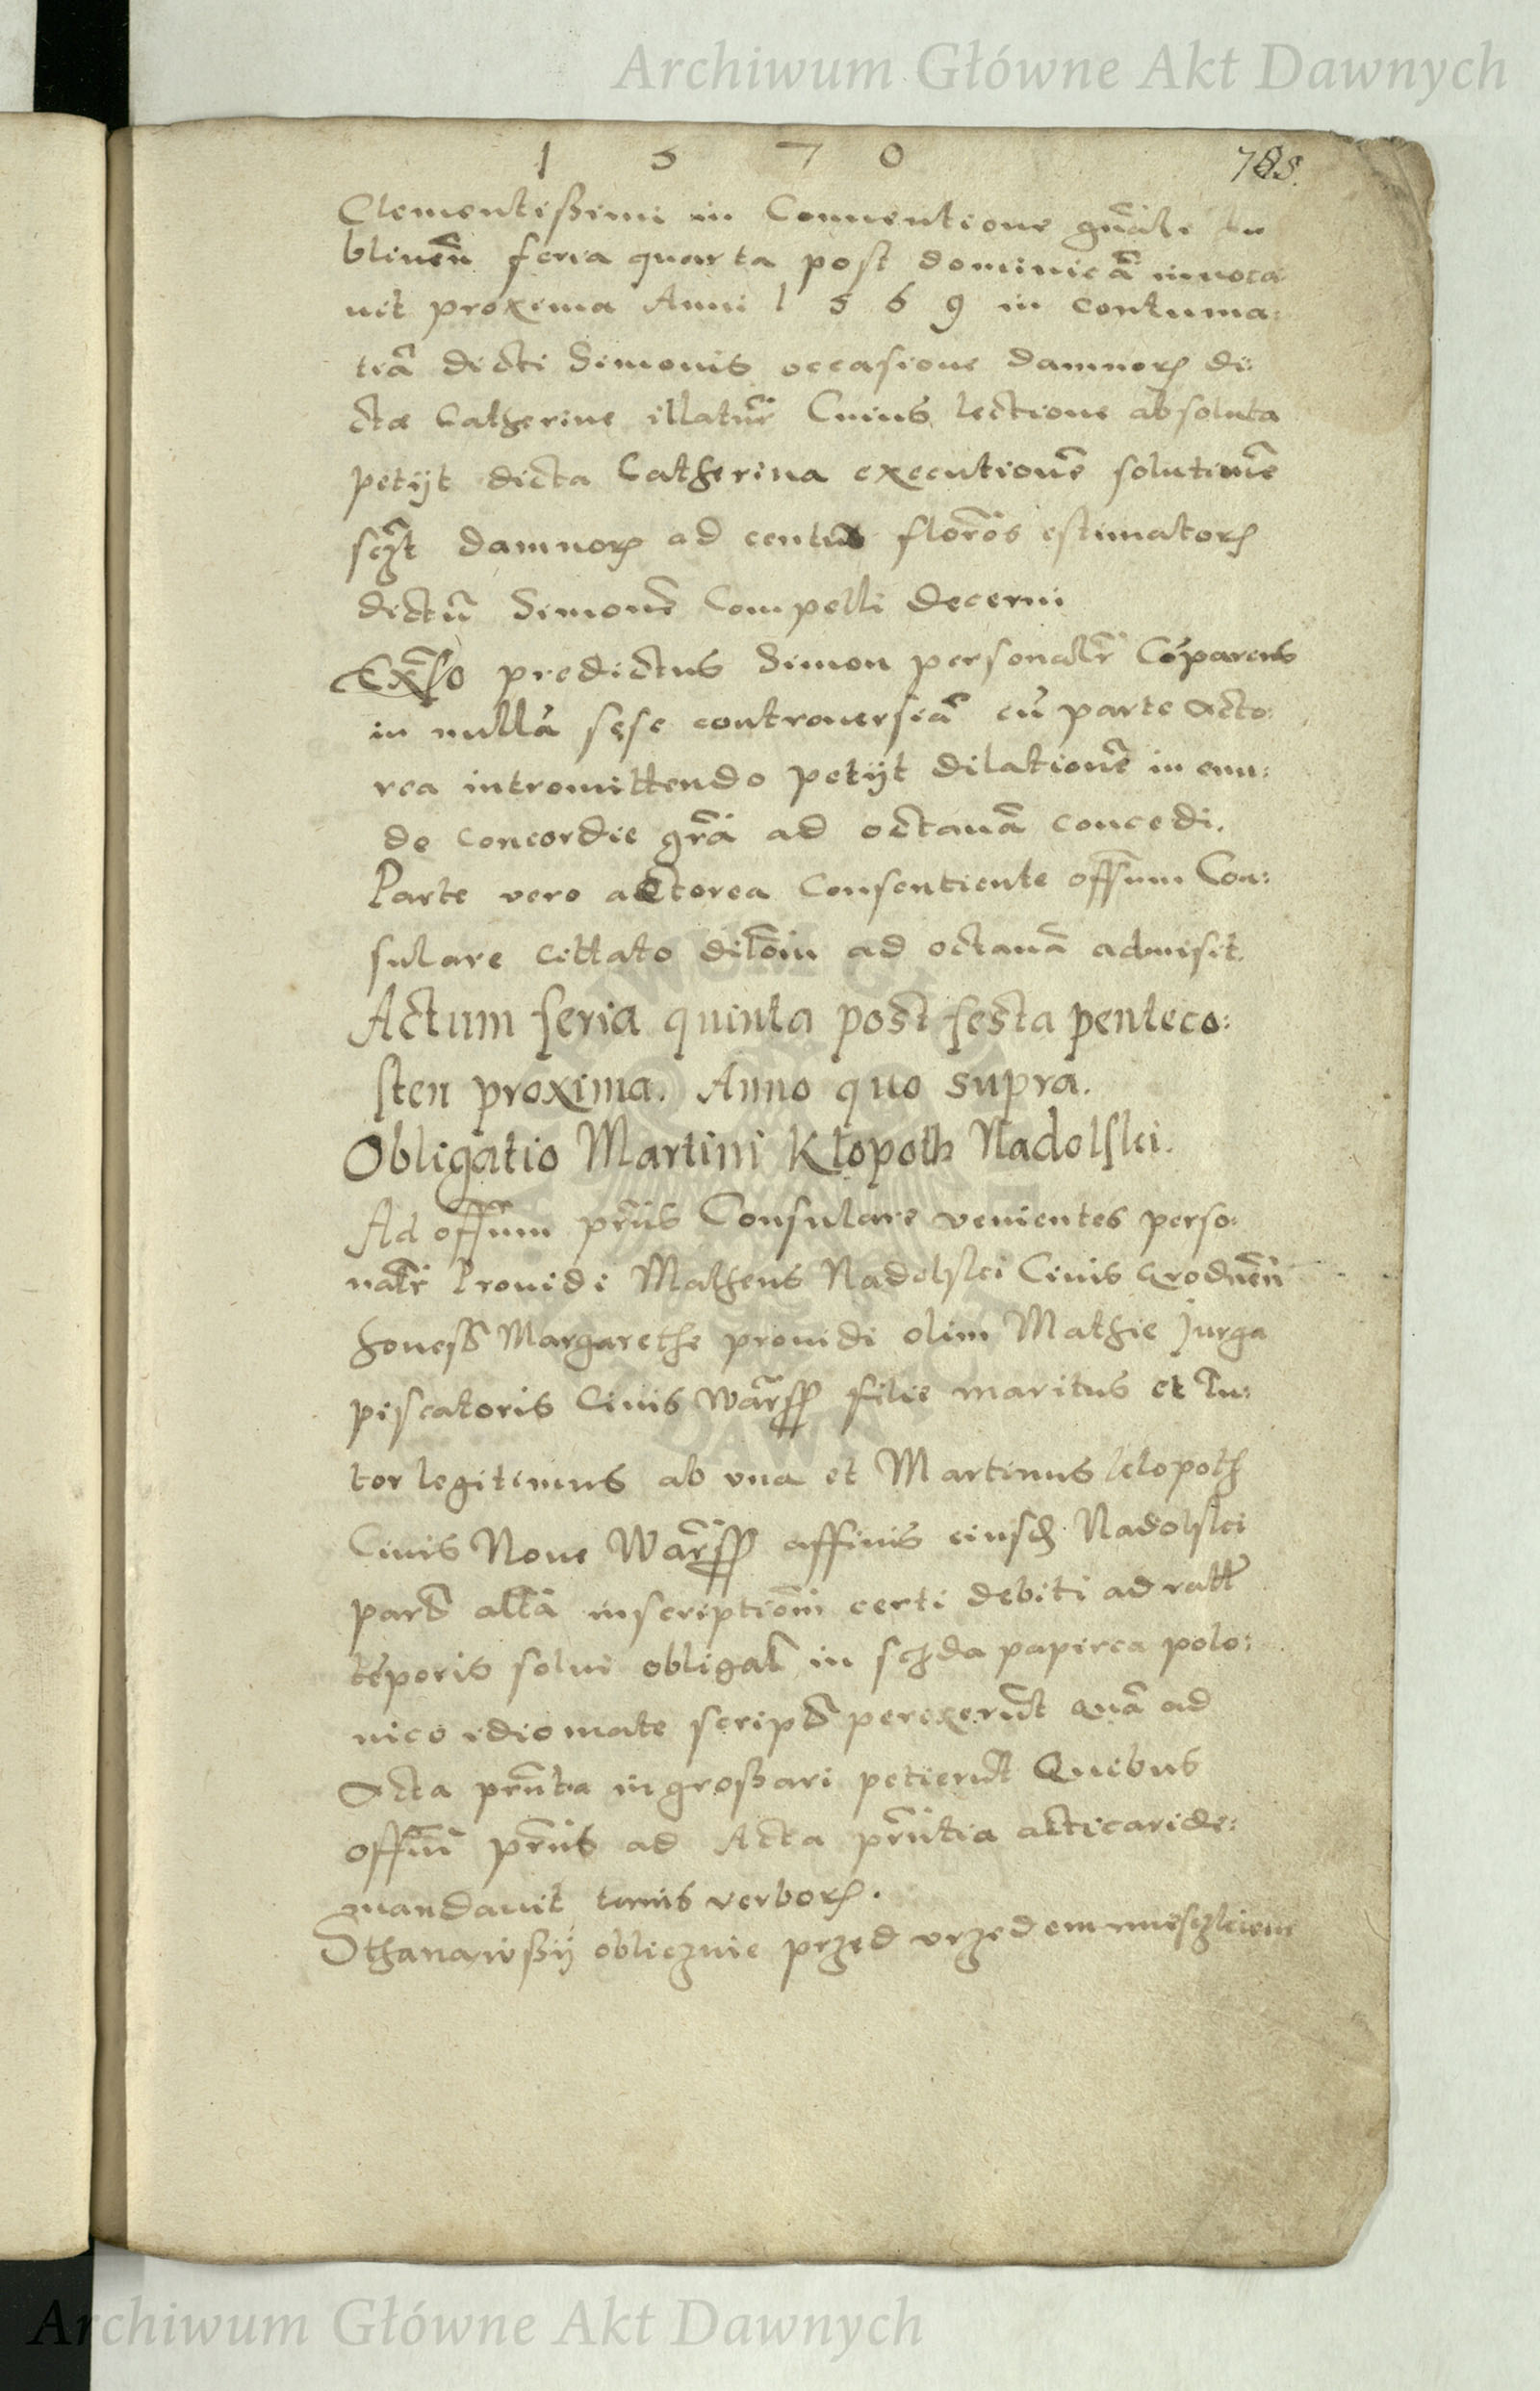 Archiwum Główne Akt Dawnych
1 5 7 0
Clementissimi in Conuentione gnāli Lu
blinēn feria quarta post dominicā inuoca
uit proxima Anni 1 5 6 9 in contuma:
tiā dicti Simonis occasione damnor di:
ctæ Catherine illatur Cuius lectione absoluta
petijt dicta Catherina executionē
damnor ad centū florōs estimator
dictū Simonē Compelli decerni
Ex aduo predictus Simon personalr Cōparens
in nullā sese controuersiā cū parte Acto:
rea intromittendo petijt dilationē in eun:
do concordie grā ad octauā concedi.
Parte vero actorea Consentiente offum Con:
sulare cittato dilōm ad octauā admisit.
Actum feria quinta post festa penteco:
sten proxima. Anno quo supra.
Obligatio Martini Klopoth Nadolski.
Ad offum prñs Consulare venientes perso:
nalr Prouidi Matheus Nadolski Ciuis Grodnēn
honest Margarethe prouidi olim Mathie Jurga
piscatoris Ciuis Warss filie maritus et Tu:
tor legitimus ab vna et Martinus klopoth
Ciuis Noue Warss affinis eiusd Nadolski
part altā inscriptiōm certi debiti ad
tēporis solui obligat in scheda papirea polo:
nico idiomate script porrexerūt Quā ad
Acta prñtia ingrossari petierūt Quibus
offm prñs ad Acta prñtia acticari de:
mandauit tenris verbor.
Sthanąwssÿ oblicznie przed vrzędem mieszkiem
Archiwum Główne Akt Dawnych